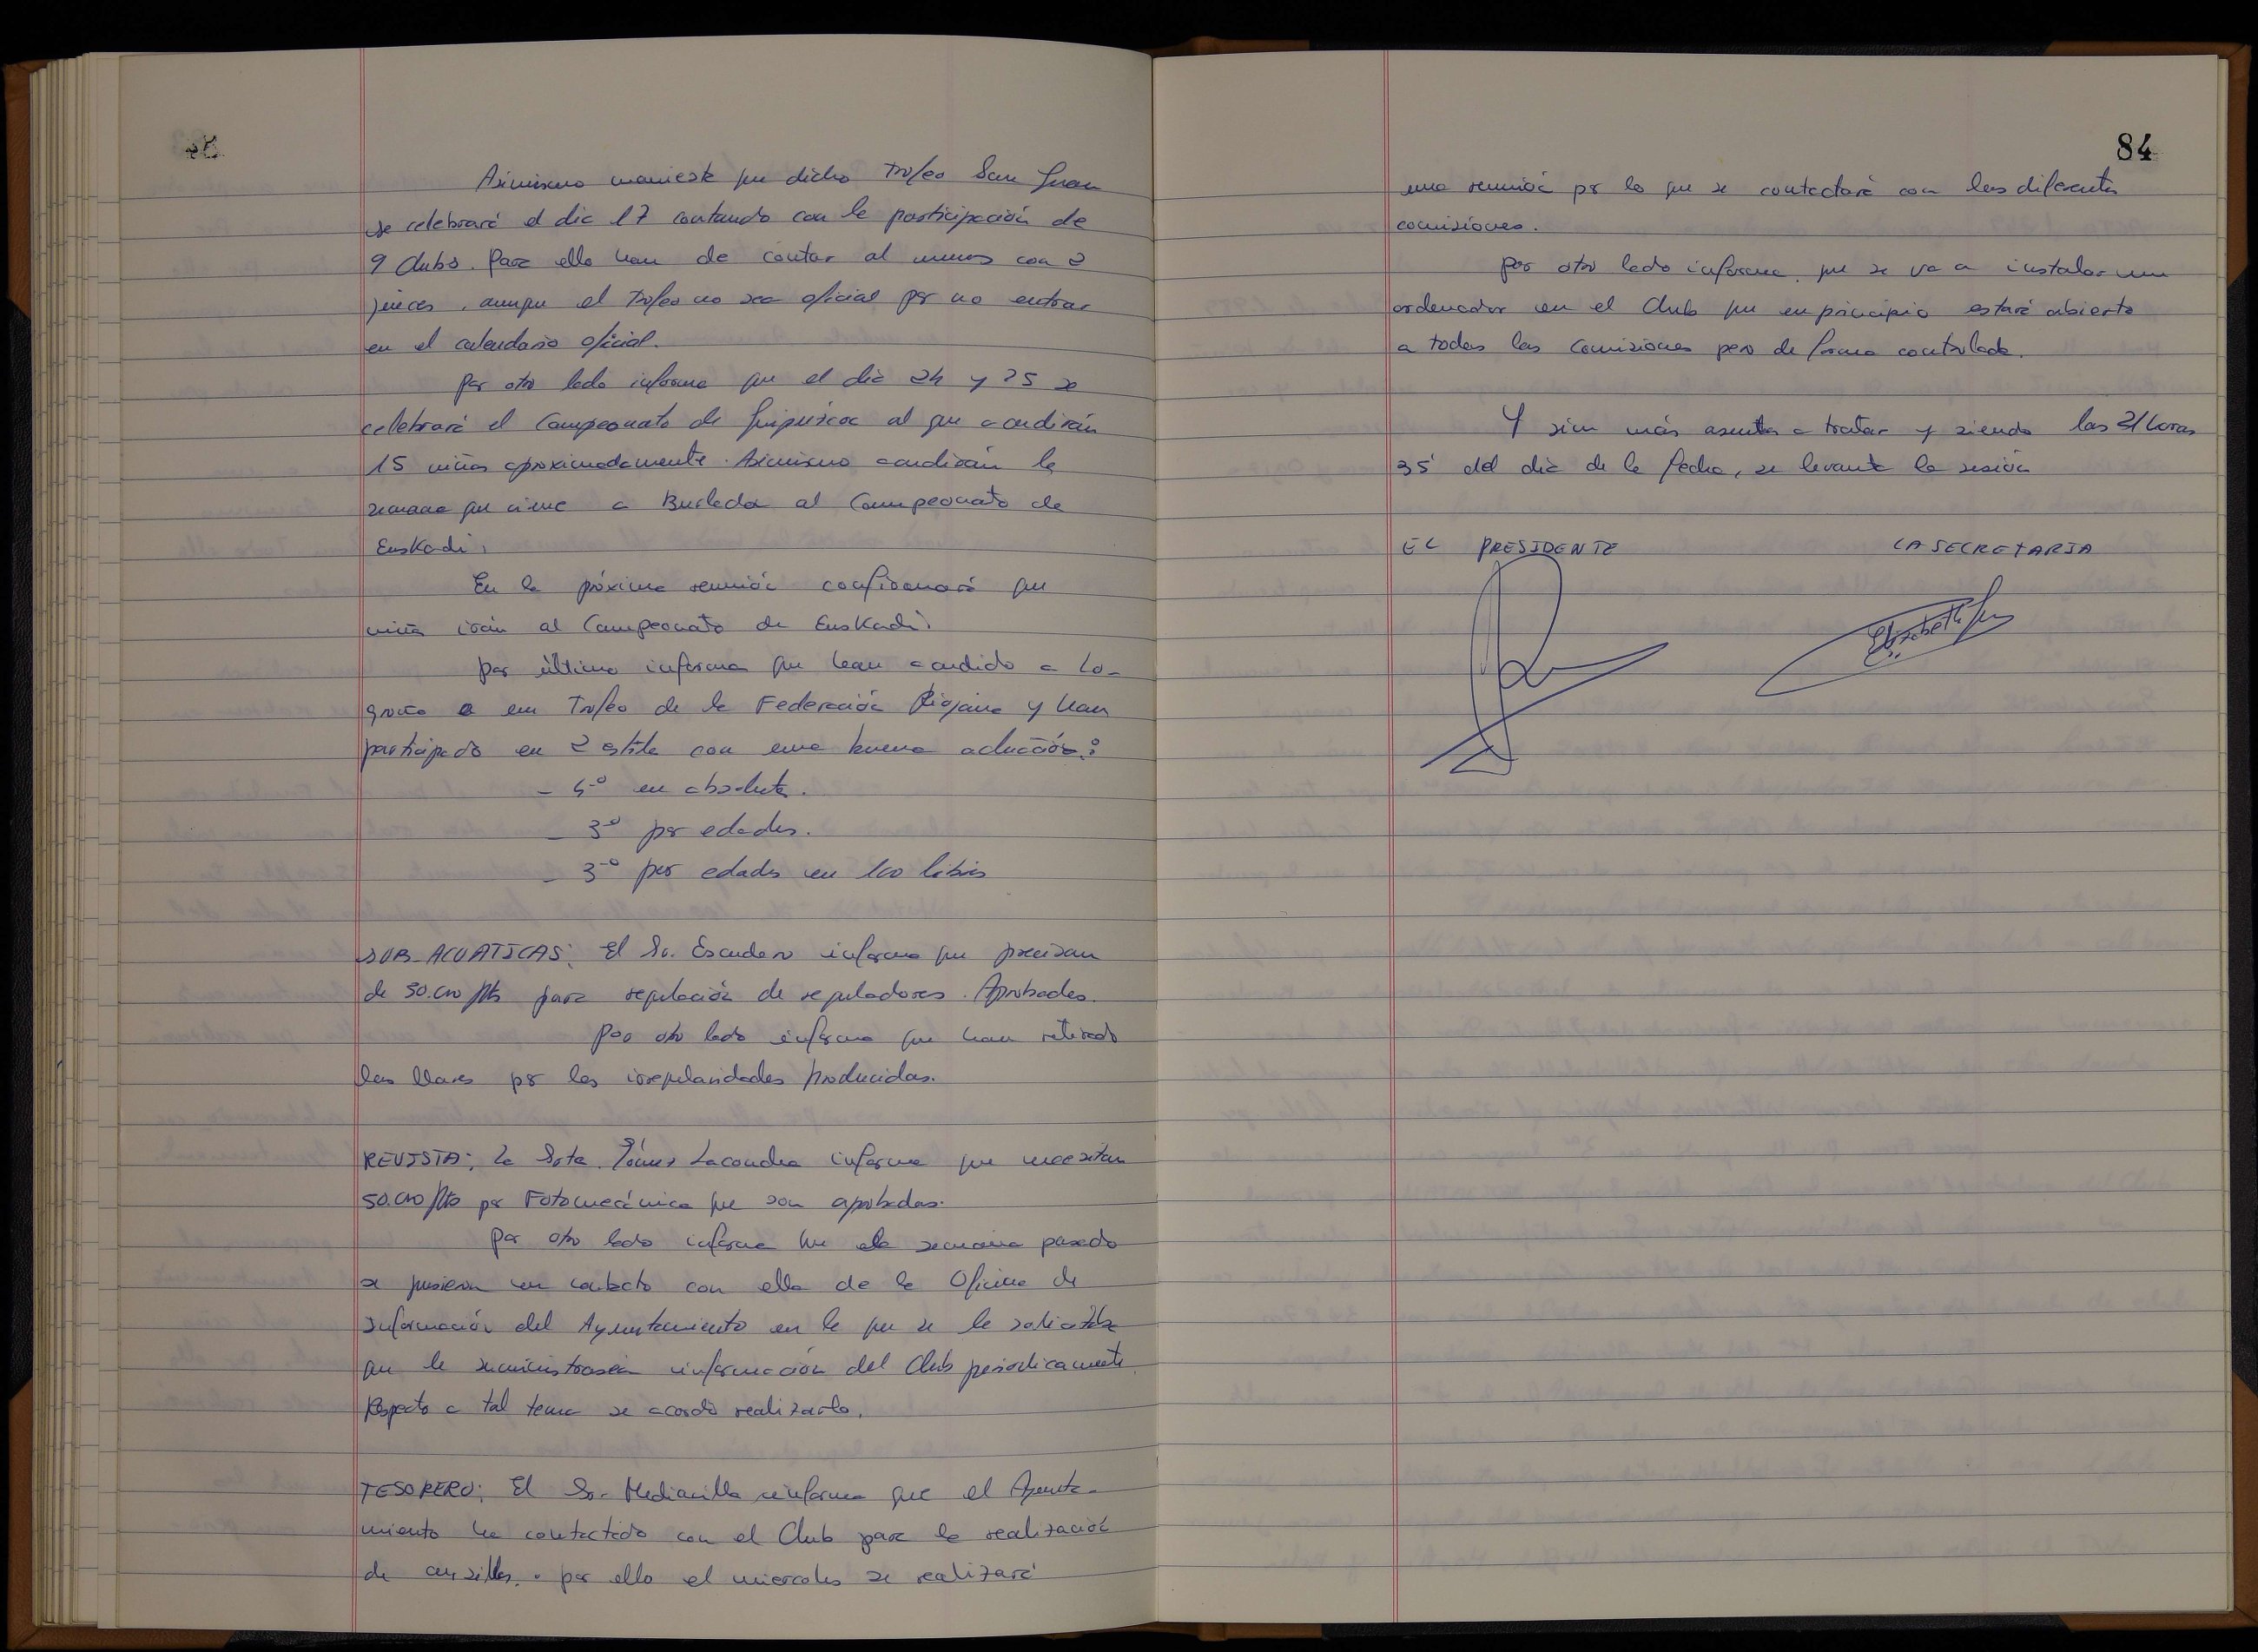 Asimismo maniesta que dicho Trofeo San Juan
se celebrará el dia 17 contando con la participación de
9 Clubs. Para ello han de contar al menos con 2
jueces, aunque el trofeo no sea oficial por no entrar
en el calendario oficial.
Por otro lado informa que el dia 24 y 25 se
celebrará el Campeonato de Guipúzcoa al que acudirán
15 niños aproximadamente. Asimismo acudirán la
semana que viene a Burlada al Campeonato de
Euskadi.
En la próxima reunión confirmará que
niños irán al Campeonato de Euskadi.
Por último informa que han acudido a Lo-
groño a un Trofeo de la Federación Riojana y han
participado en 2 estilos con una buena actuación:
- 4º en absoluta.
- 3º por edades.
- 3º por edades en 100 libres
SUB-ACUATICAS: El Sr. Escudero informa que precisan
de 50.000 pts para regulación de reguladores. Aprobadas.
Por otro lado informa que han retirado
las llaves por las irregularidades producidas.
REVISTA: La Srta. Lacondra informa que necesitan
50.000 pts por Fotomecánica que son aprobadas.
Por otro lado informa que la semana pasada
se pusieron en contacto con ella de la Oficina de
Información del Ayuntamiento en la que se le solicitaba
que le suministrasen información del Club periodicamente.
Respecto a tal tema se acordó realizarlo.
TESORERO: El Sr. Medianilla informa que el Ayunta-
miento ha contactado con el Club para la realización
de cursillos, por ello el miercoles se realizará
84
una reunión por lo que se contactará con las diferentes
comisiones.
Por otro lado informa que se va a instalar un
ordenador en el Club que en principio estará abierto
a todas las Comisiones pero de forma controlada.
Y sin más asuntos a tratar y siendo las 21 horas
35' del dia de la fecha, se levanta la sesión
EL PRESIDENTE LA SECRETARIA